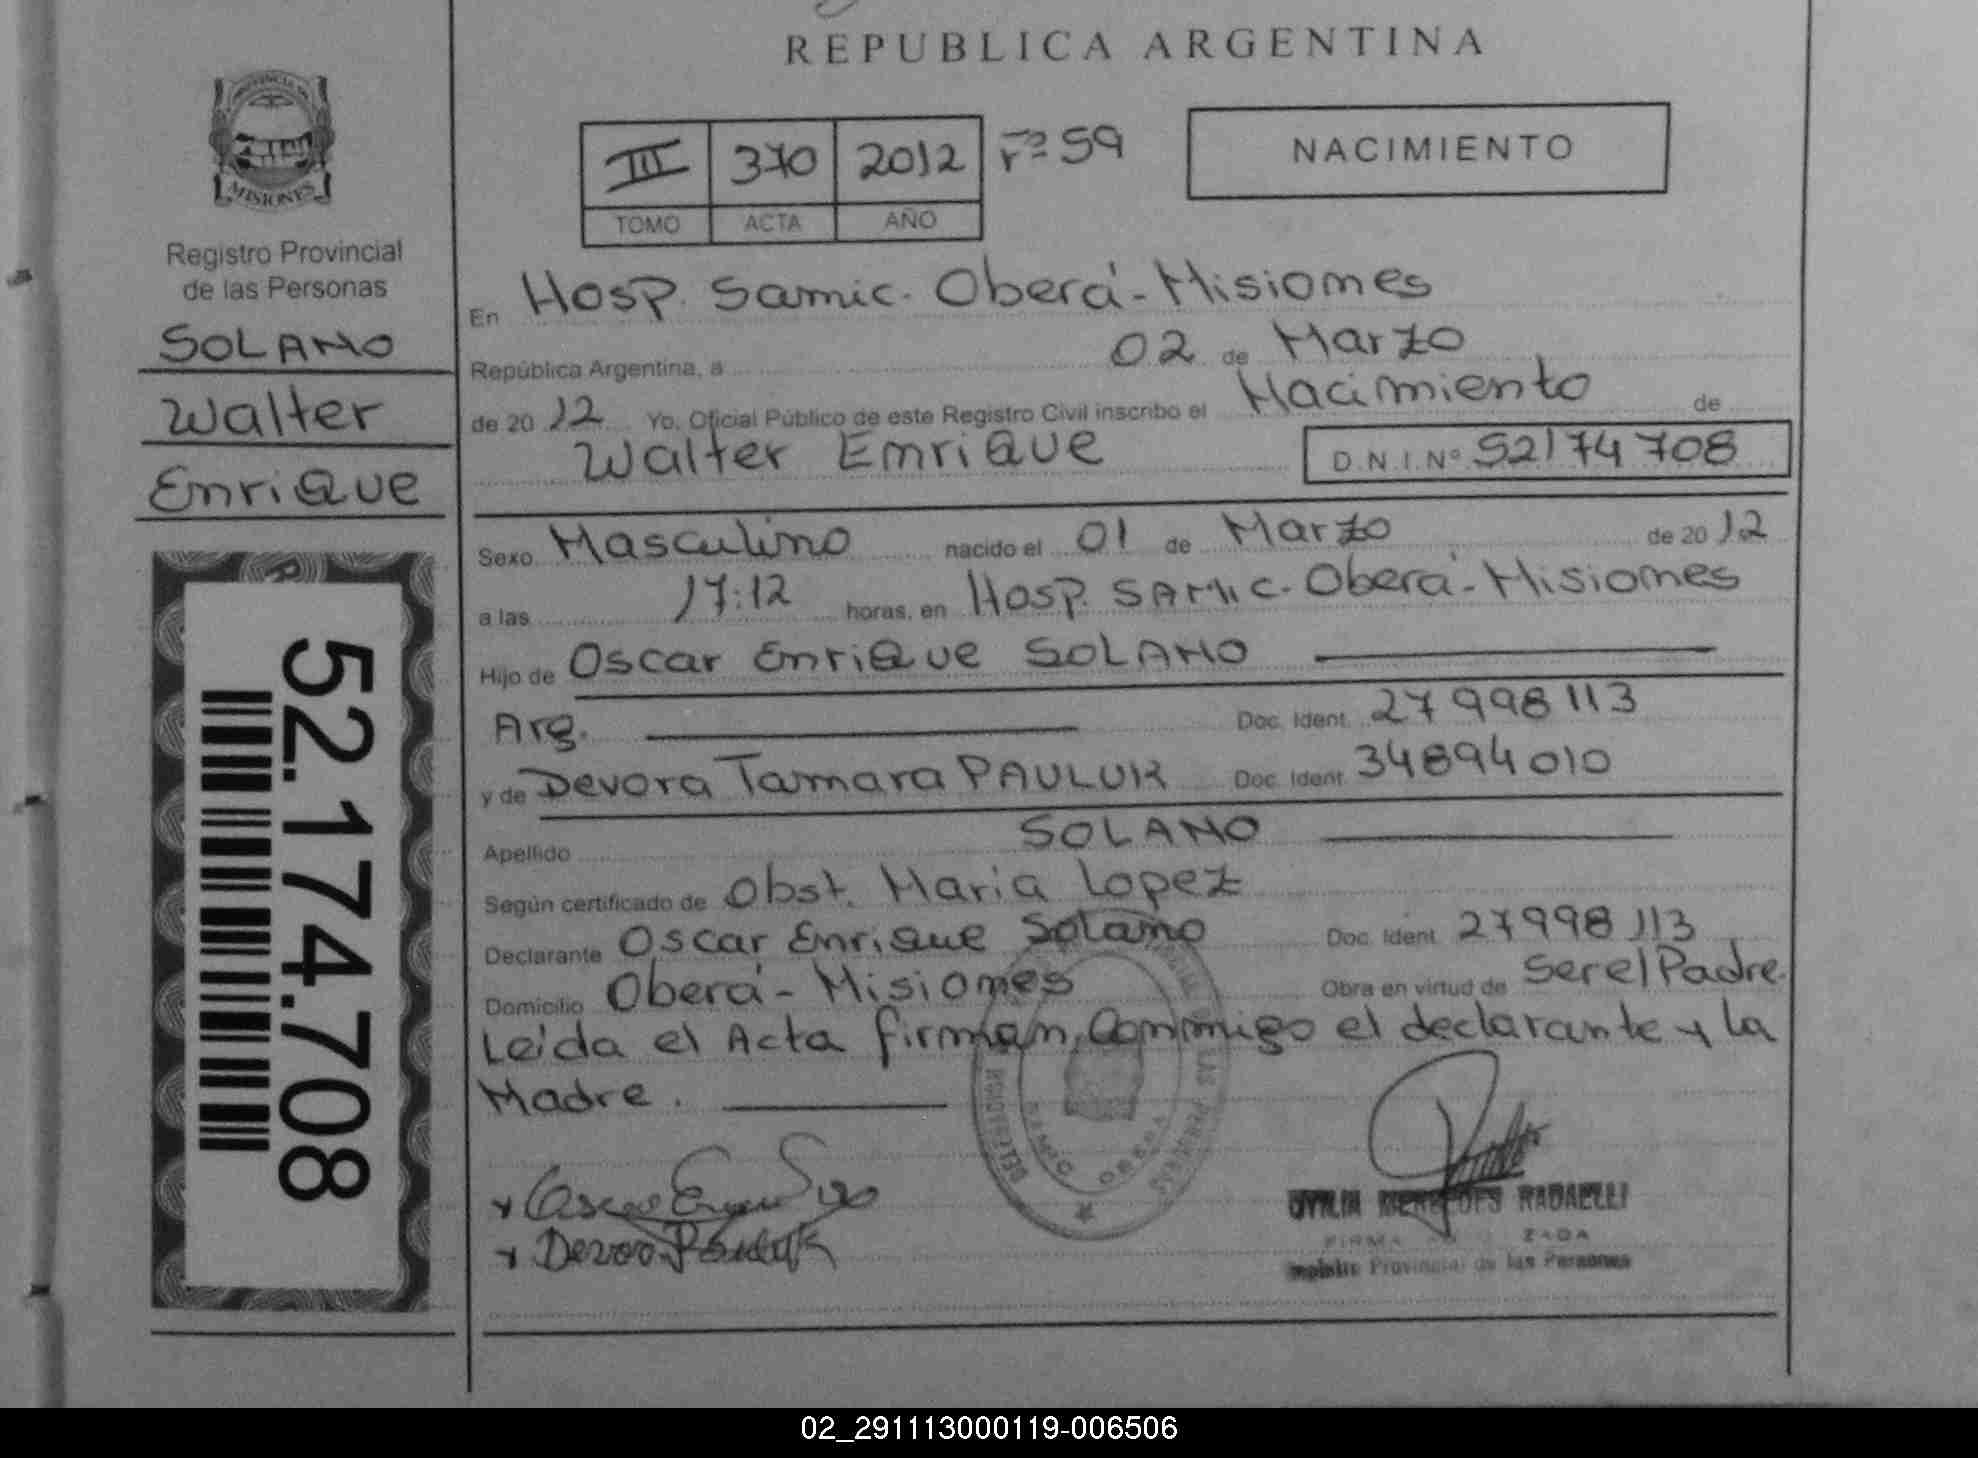 REPUBLICA ARGENTINA
III 370 2012 Fº 59
TOMO ACTA AÑO
NACIMIENTO
MISIONES
Registro Provincial
de las Personas
SOLANO
Walter
Enrique
52.174.708
En Hosp. Samic. Oberá - Misiones
República Argentina, a 02 de Marzo
de 2012 Yo, Oficial Público de este Registro Civil inscribo el Nacimiento de
Walter Enrique D.N.I.Nº 52174708
Sexo Masculino nacido el 01 de Marzo de 2012
a las 17:12 horas, en Hosp. SAMIC. Oberá - Misiones
Hijo de Oscar Enrique SOLANO
Arg. Doc. Ident. 27998113
y de Devora Tamara PAULUK Doc. Ident. 34894010
Apellido SOLANO
Según certificado de Obst. Maria Lopez
Declarante Oscar Enrique Solano Doc. Ident. 27998113
Domicilio Oberá - Misiones Obra en virtud de Ser el Padre.
Leída el Acta firman, Conmigo el declarante y la
Madre.
MERCEDES RADAELLI
Provincial de las Personas
02_291113000119-006506